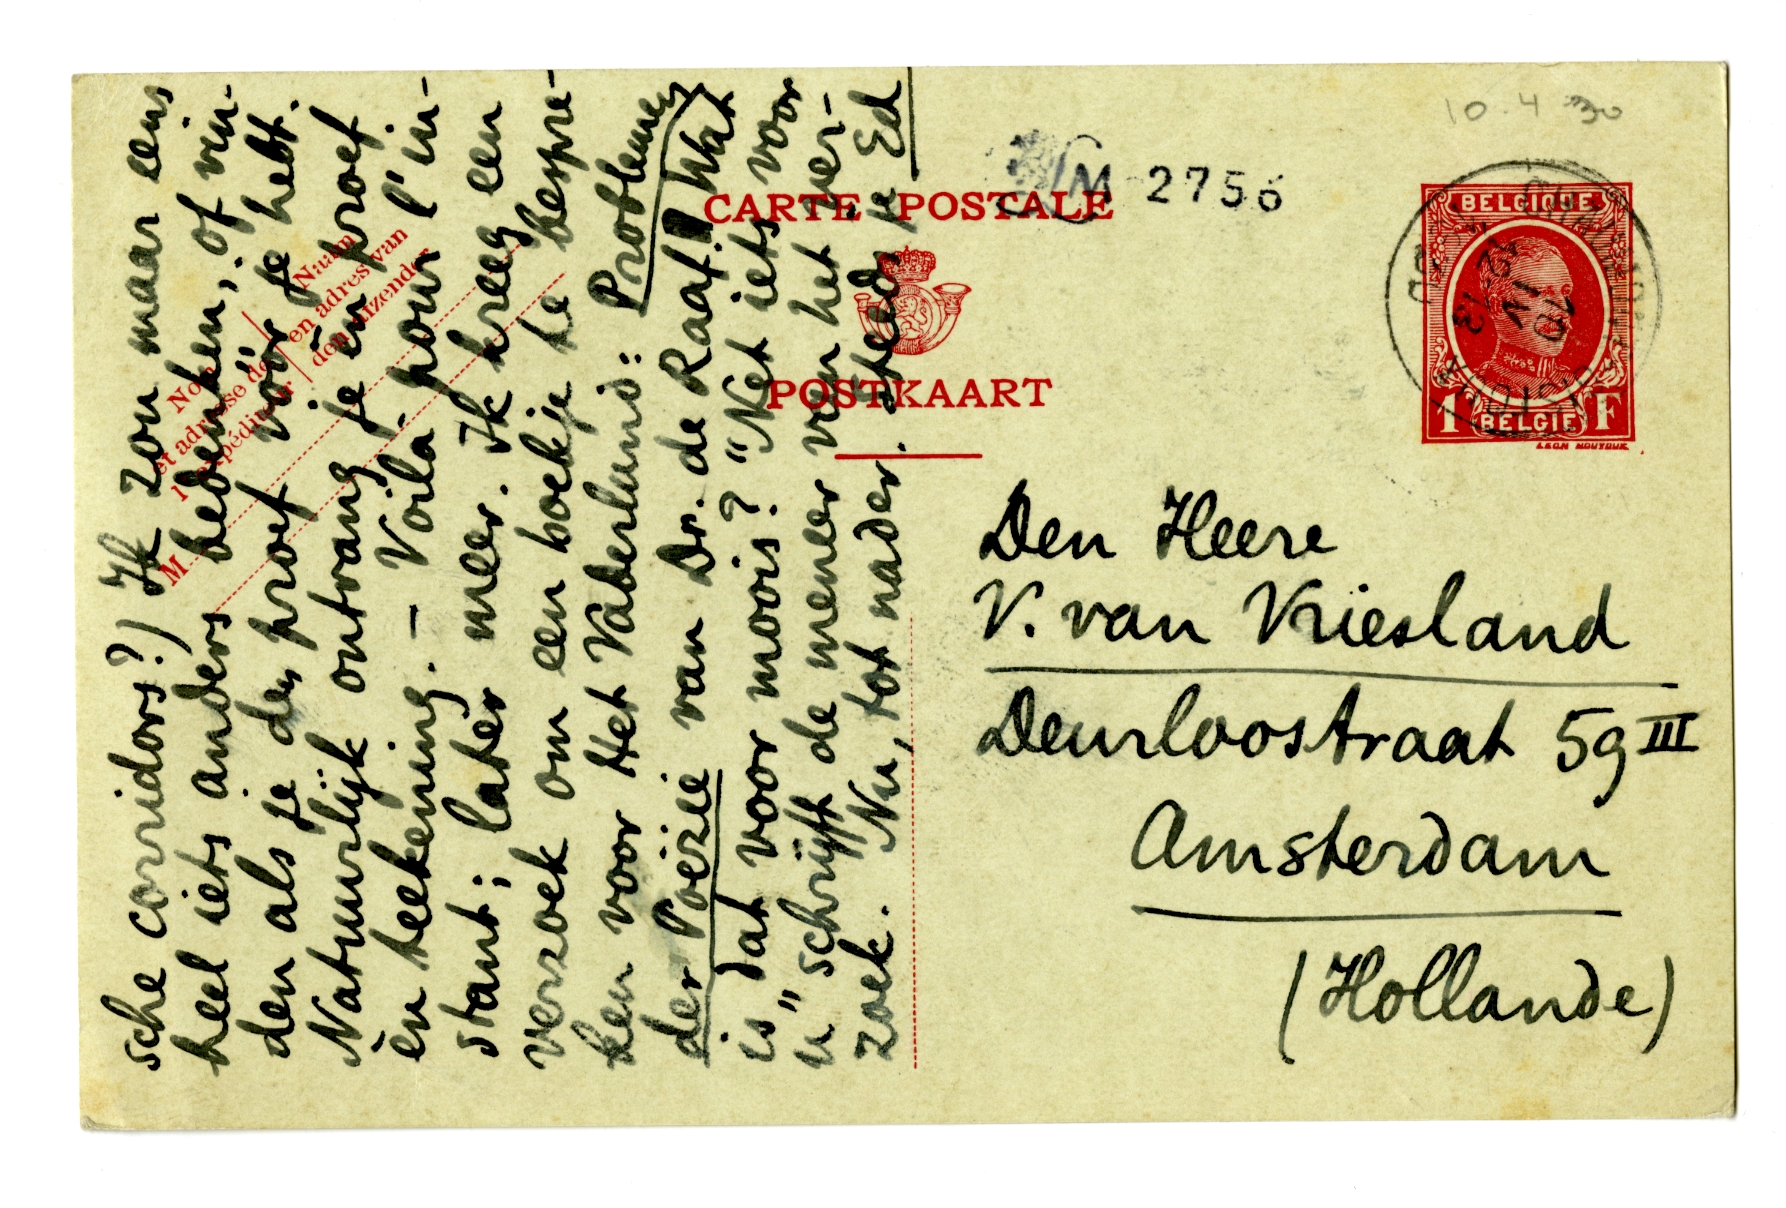 sche corridors?) Ik zou maar eens
heel iets anders bedenken, of vin-
den als je de proef vóór je hebt.
Natuurlijk ontvang je èn proef
èn teekening. — Voilà pour l'in-
stant; later meer. Ik kreeg een
verzoek om een boekje te bespre-
ken voor Het Vaderland: Problemen
der Poëzie van Dr. de Raaf. Wat
is dat voor moois? "Net iets voor
u" schrijft de meneer van het ver-
zoek. Nu, tot nader. Steeds je Ed
Nom
et adresse de
l'expéditeur
Naam
en adres van
den afzender
M
CARTE POSTALE
POSTKAART
M 2756
10.4 30
BELGIQUE
1 F
BELGIE
LEON HOUYOUX
12-13
VI
Den Heere
V. van Vriesland
Deurloostraat 59 III
Amsterdam
(Hollande)